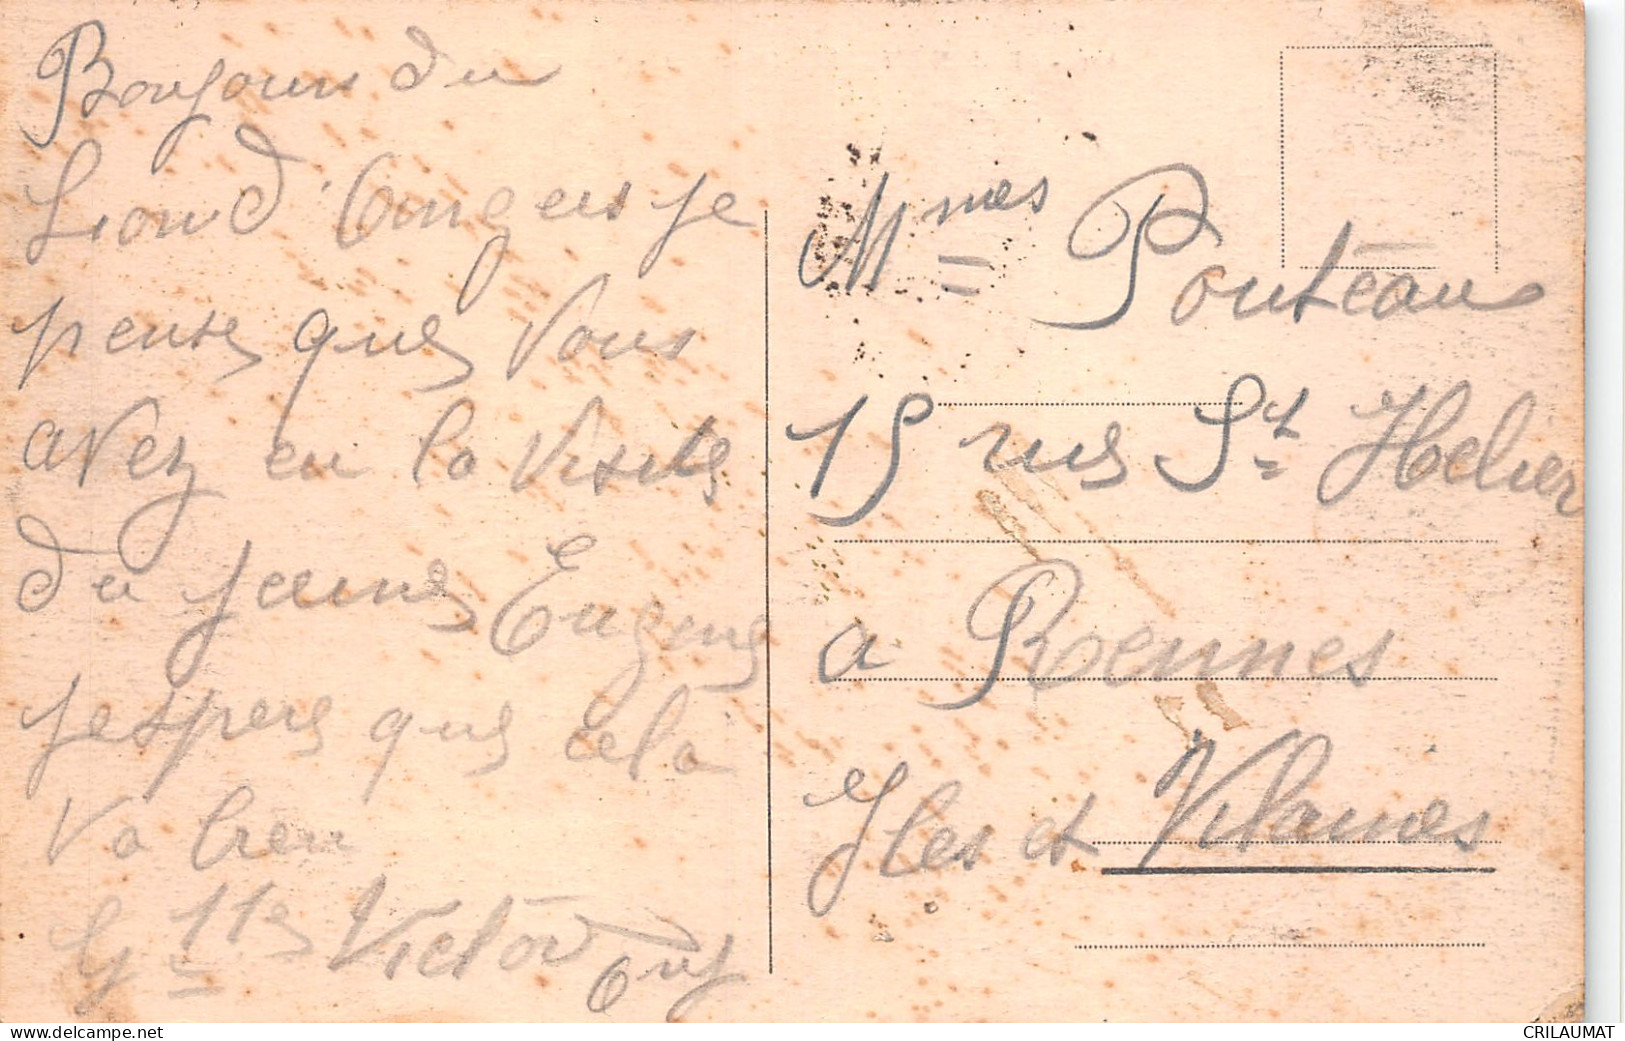 Bonjours du
Lion d'Angers je
pense que vous
avez eu la visite
du jeune Eugene
jespere que celà
va bien
Victor
Mmes Pouteau
15 rue St Helier
a Rennes
Iles et Vilaines
CRILAUMAT